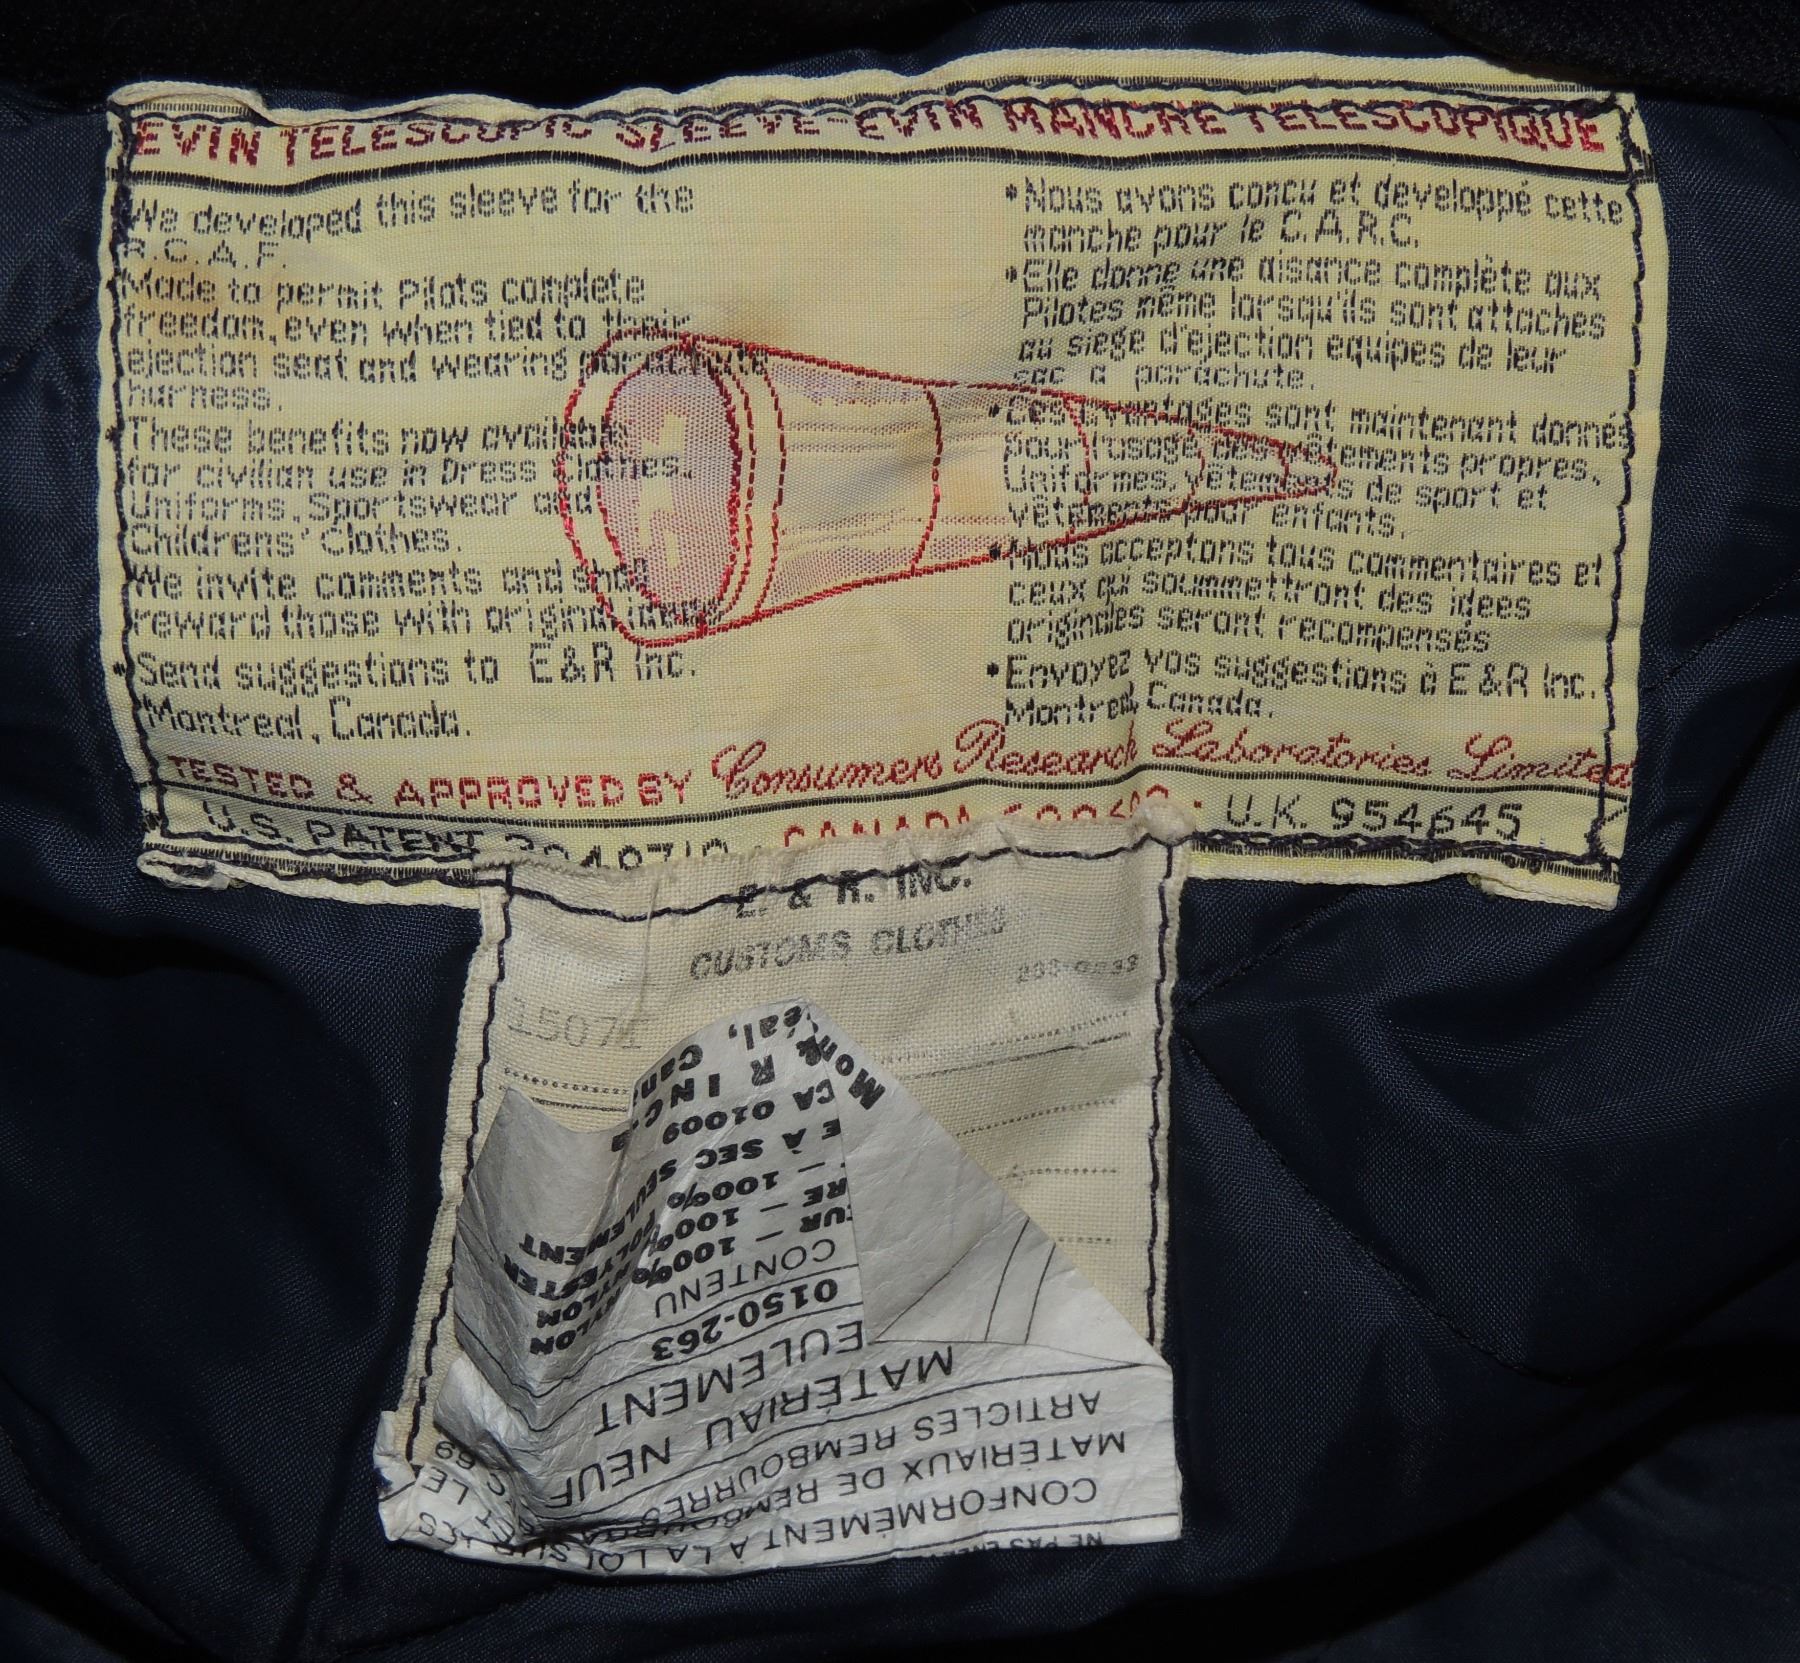 EVIN TELESCOPIC SLEEVE-EVIN MANCHE TELESCOPIQUE
We developed this sleeve for the
R.C.A.F.
Made to permit Pilots complete
freedom, even when tied to their
ejection seat and wearing parachute
harness.
•These benefits now available
for civilian use in Dress Clothes.
Uniforms, Sportswear and
Childrens' Clothes.
We invite comments and shall
reward those with original ideas
•Send suggestions to E&R Inc.
Montreal, Canada.
•Nous avons concu et developpé cette
manche pour le C.A.R.C.
•Elle donne une aisance complète aux
Pilotes même lorsqu'ils sont attaches
au siege d'ejection equipes de leur
sac a parachute.
•Ces avantages sont maintenant donnés
pour l'usage des vêtements propres,
Uniformes, vêtements de sport et
vêtements pour enfants.
•Nous acceptons tous commentaires et
ceux qui soummettront des idees
originales seront recompensés
•Envoyez vos suggestions à E&R Inc.
Montreal, Canada.
TESTED & APPROVED BY Consumers Research Laboratories Limited
U.S. PATENT CANADA · U.K. 954645
E. & R. INC.
CUSTOMS CLOTHES
NE PAS
CONFORMÉMENT À LA LOI
MATÉRIAUX DE REMBOURRAGE
ARTICLES REMBOURRÉS
MATÉRIAU NEUF
MATÉ
EULEMENT
0150-263
CONTENU
EUR – 100% NYLON
RE – 100% NYLON
– 100% POLYESTER
E À SEC SEULEMENT
CA 01009
& R INC.
Mon
éal, Can